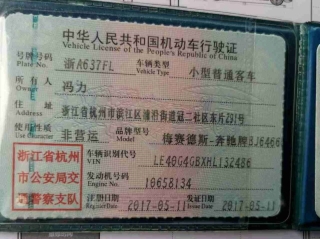 中华人民共和国机动车行驶证
Vehicle License of the People's Republic of China
号牌号码 浙A637FL 车辆类型 小型普通客车
Plate No. Vehicle Type
所有人 冯力
Owner
住址 浙江省杭州市滨江区浦沿街道冠二社区东斤291号
Address
使用性质 非营运 品牌型号 梅赛德斯-奔驰牌BJ6466
浙江省杭州市公安局交通警察支队
车辆识别代号 LE40G4GBXHL132486
VIN
发动机号码 10658134
Engine No.
注册日期 2017-05-11 发证日期 2017-05-11
Register Date Issue Date